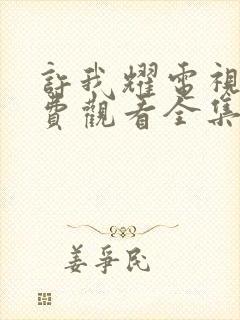 許我耀電視
費觀看全集
姜爭民